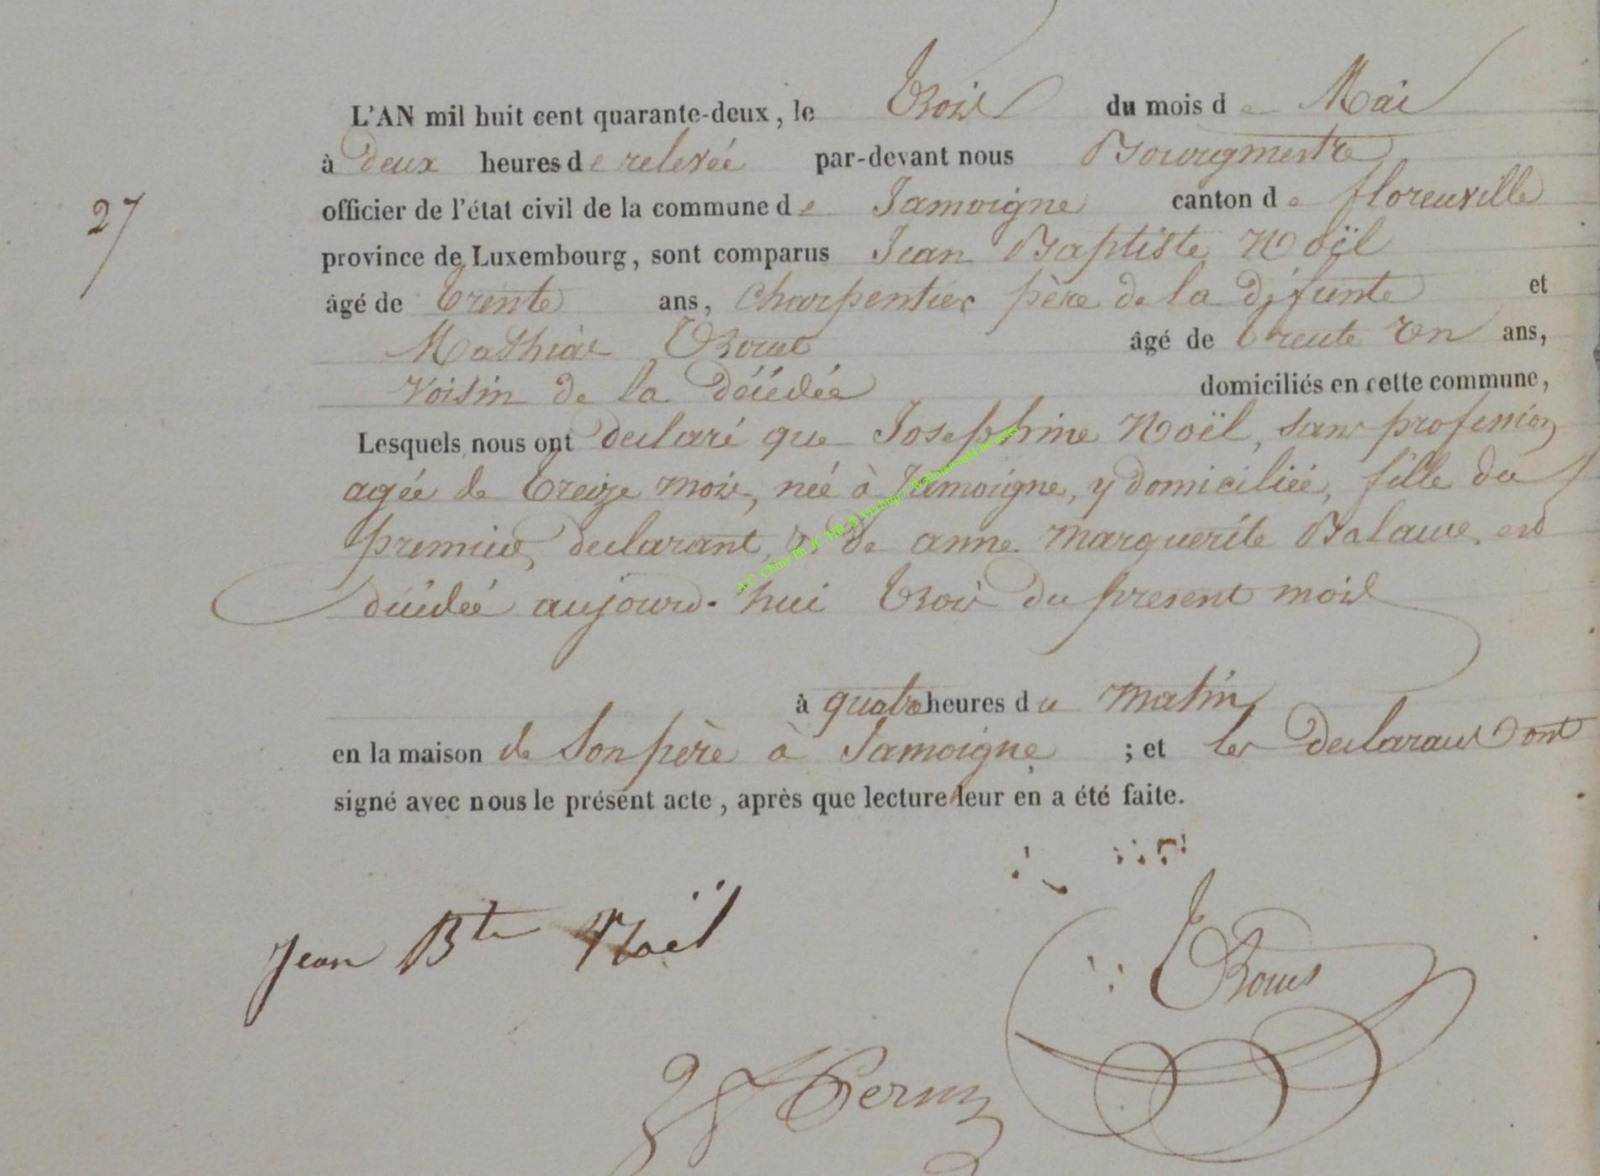 L'AN mil huit cent quarante-deux, le Trois du mois de Mai
à deux heures de relevée par-devant nous Bourgmestre
27
officier de l'état civil de la commune de Jamoigne canton de florenville
province de Luxembourg, sont comparus Jean Baptiste Noël
âgé de Trente ans, Charpentier père de la défunte et
Mathias âgé de trente un ans,
voisin de la décédée domiciliés en cette commune,
Lesquels nous ont declaré que Josephine Noël, sans profession
agée de Treize mois, née à Jamoigne, y domiciliée, fille du
premier declarant, & de anne Marguerite est
décédée aujourd-hui Trois du present mois
à quatre heures du matin
en la maison de Son père à Jamoigne ; et les declarans ont
signé avec nous le présent acte, après que lecture leur en a été faite.
Jean Bte Noël